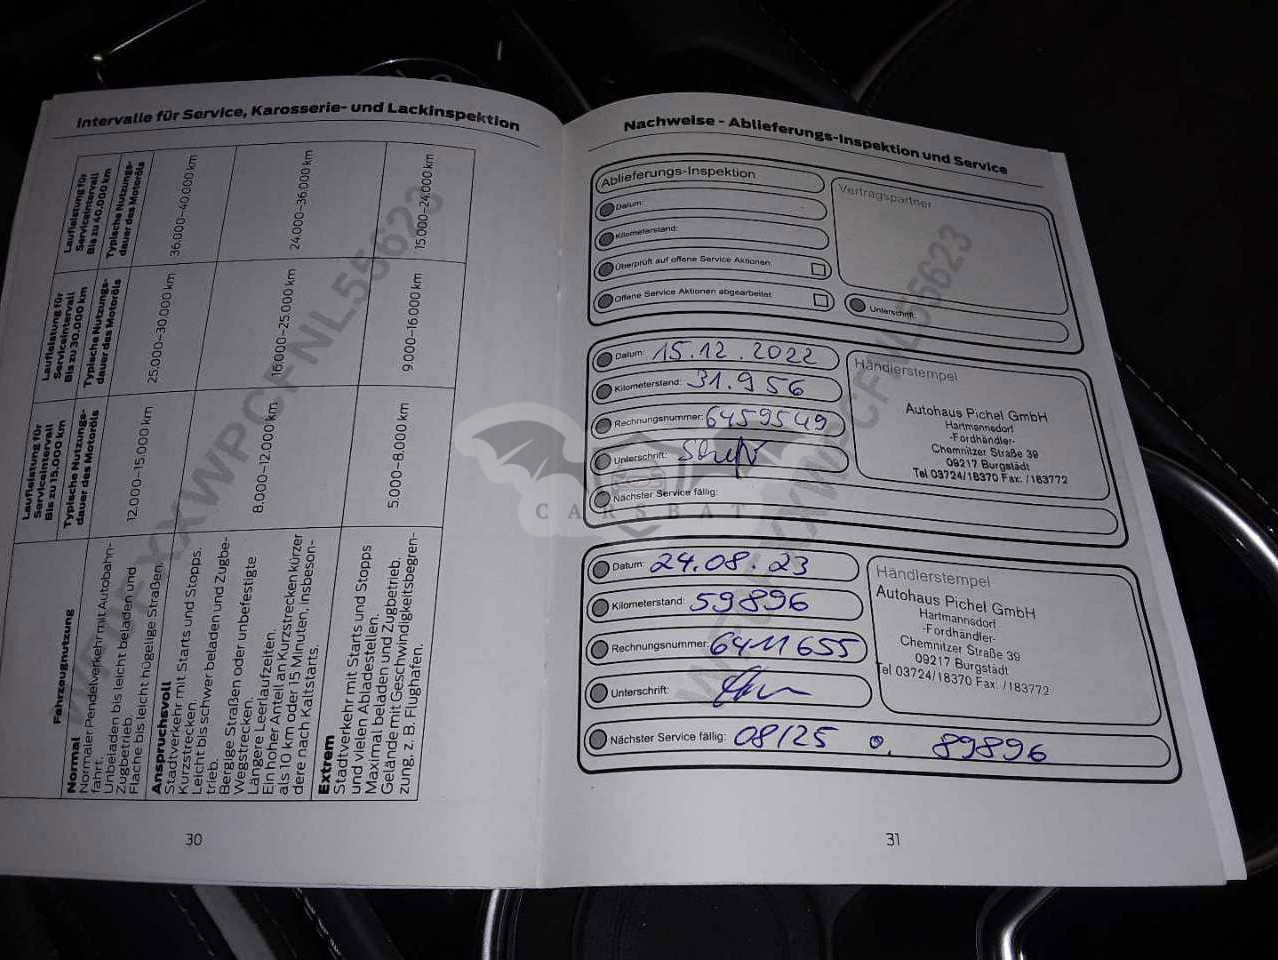 Intervalle für Service, Karosserie- und Lackinspektion
Fahrzeugnutzung
Laufleistung für
Serviceintervall
Bis zu 15.000 km
Typische Nutzungs-
dauer des Motoröls
Laufleistung für
Serviceintervall
Bis zu 30.000 km
Typische Nutzungs-
dauer des Motoröls
Laufleistung für
Serviceintervall
Bis zu 40.000 km
Typische Nutzungs-
dauer des Motoröls
Normal
Normaler Pendelverkehr mit Autobahn-
fahrt.
Unbeladen bis leicht beladen und
Zugbetrieb.
Flache bis leicht hügelige Straßen.
12.000–15.000 km
25.000–30.000 km
36.000–40.000 km
Anspruchsvoll
Stadtverkehr mit Starts und Stopps.
Kurzstrecken.
Leicht bis schwer beladen und Zugbe-
trieb.
Bergige Straßen oder unbefestigte
Wegstrecken.
Längere Leerlaufzeiten.
Ein hoher Anteil an Kurzstrecken kürzer
als 10 km oder 15 Minuten, insbeson-
dere nach Kaltstarts.
8.000–12.000 km
16.000–25.000 km
24.000–36.000 km
Extrem
Stadtverkehr mit Starts und Stopps
und vielen Abladestellen.
Maximal beladen und Zugbetrieb.
Gelände mit Geschwindigkeitsbegren-
zung, z. B. Flughafen.
5.000–8.000 km
9.000–16.000 km
15.000–24.000 km
30
Nachweise - Ablieferungs-Inspektion und Service
Ablieferungs-Inspektion
Datum:
Kilometerstand:
Überprüft auf offene Service Aktionen
Offene Service Aktionen abgearbeitet
Vertragspartner
Unterschrift:
Datum: 15.12.2022
Kilometerstand: 31.956
Rechnungsnummer: 6459549
Unterschrift:
Nächster Service fällig:
Händlerstempel
Autohaus Pichel GmbH
Hartmannsdorf
-Fordhändler-
Chemnitzer Straße 39
09217 Burgstädt
Tel 03724/18370 Fax: /183772
CARSBAT
Datum: 24.08.23
Kilometerstand: 59896
Rechnungsnummer: 6411655
Unterschrift:
Nächster Service fällig: 08/25 o. 89896
Händlerstempel
Autohaus Pichel GmbH
Hartmannsdorf
-Fordhändler-
Chemnitzer Straße 39
09217 Burgstädt
Tel 03724/18370 Fax: /183772
31